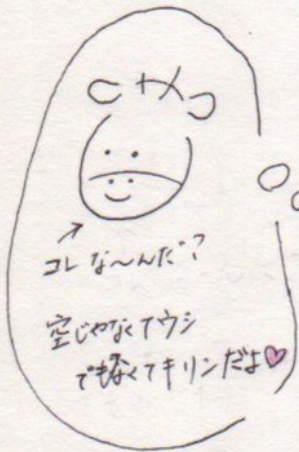 コレな〜んだ?
空じゃなくてウシ
でもなくてキリンだよ♡